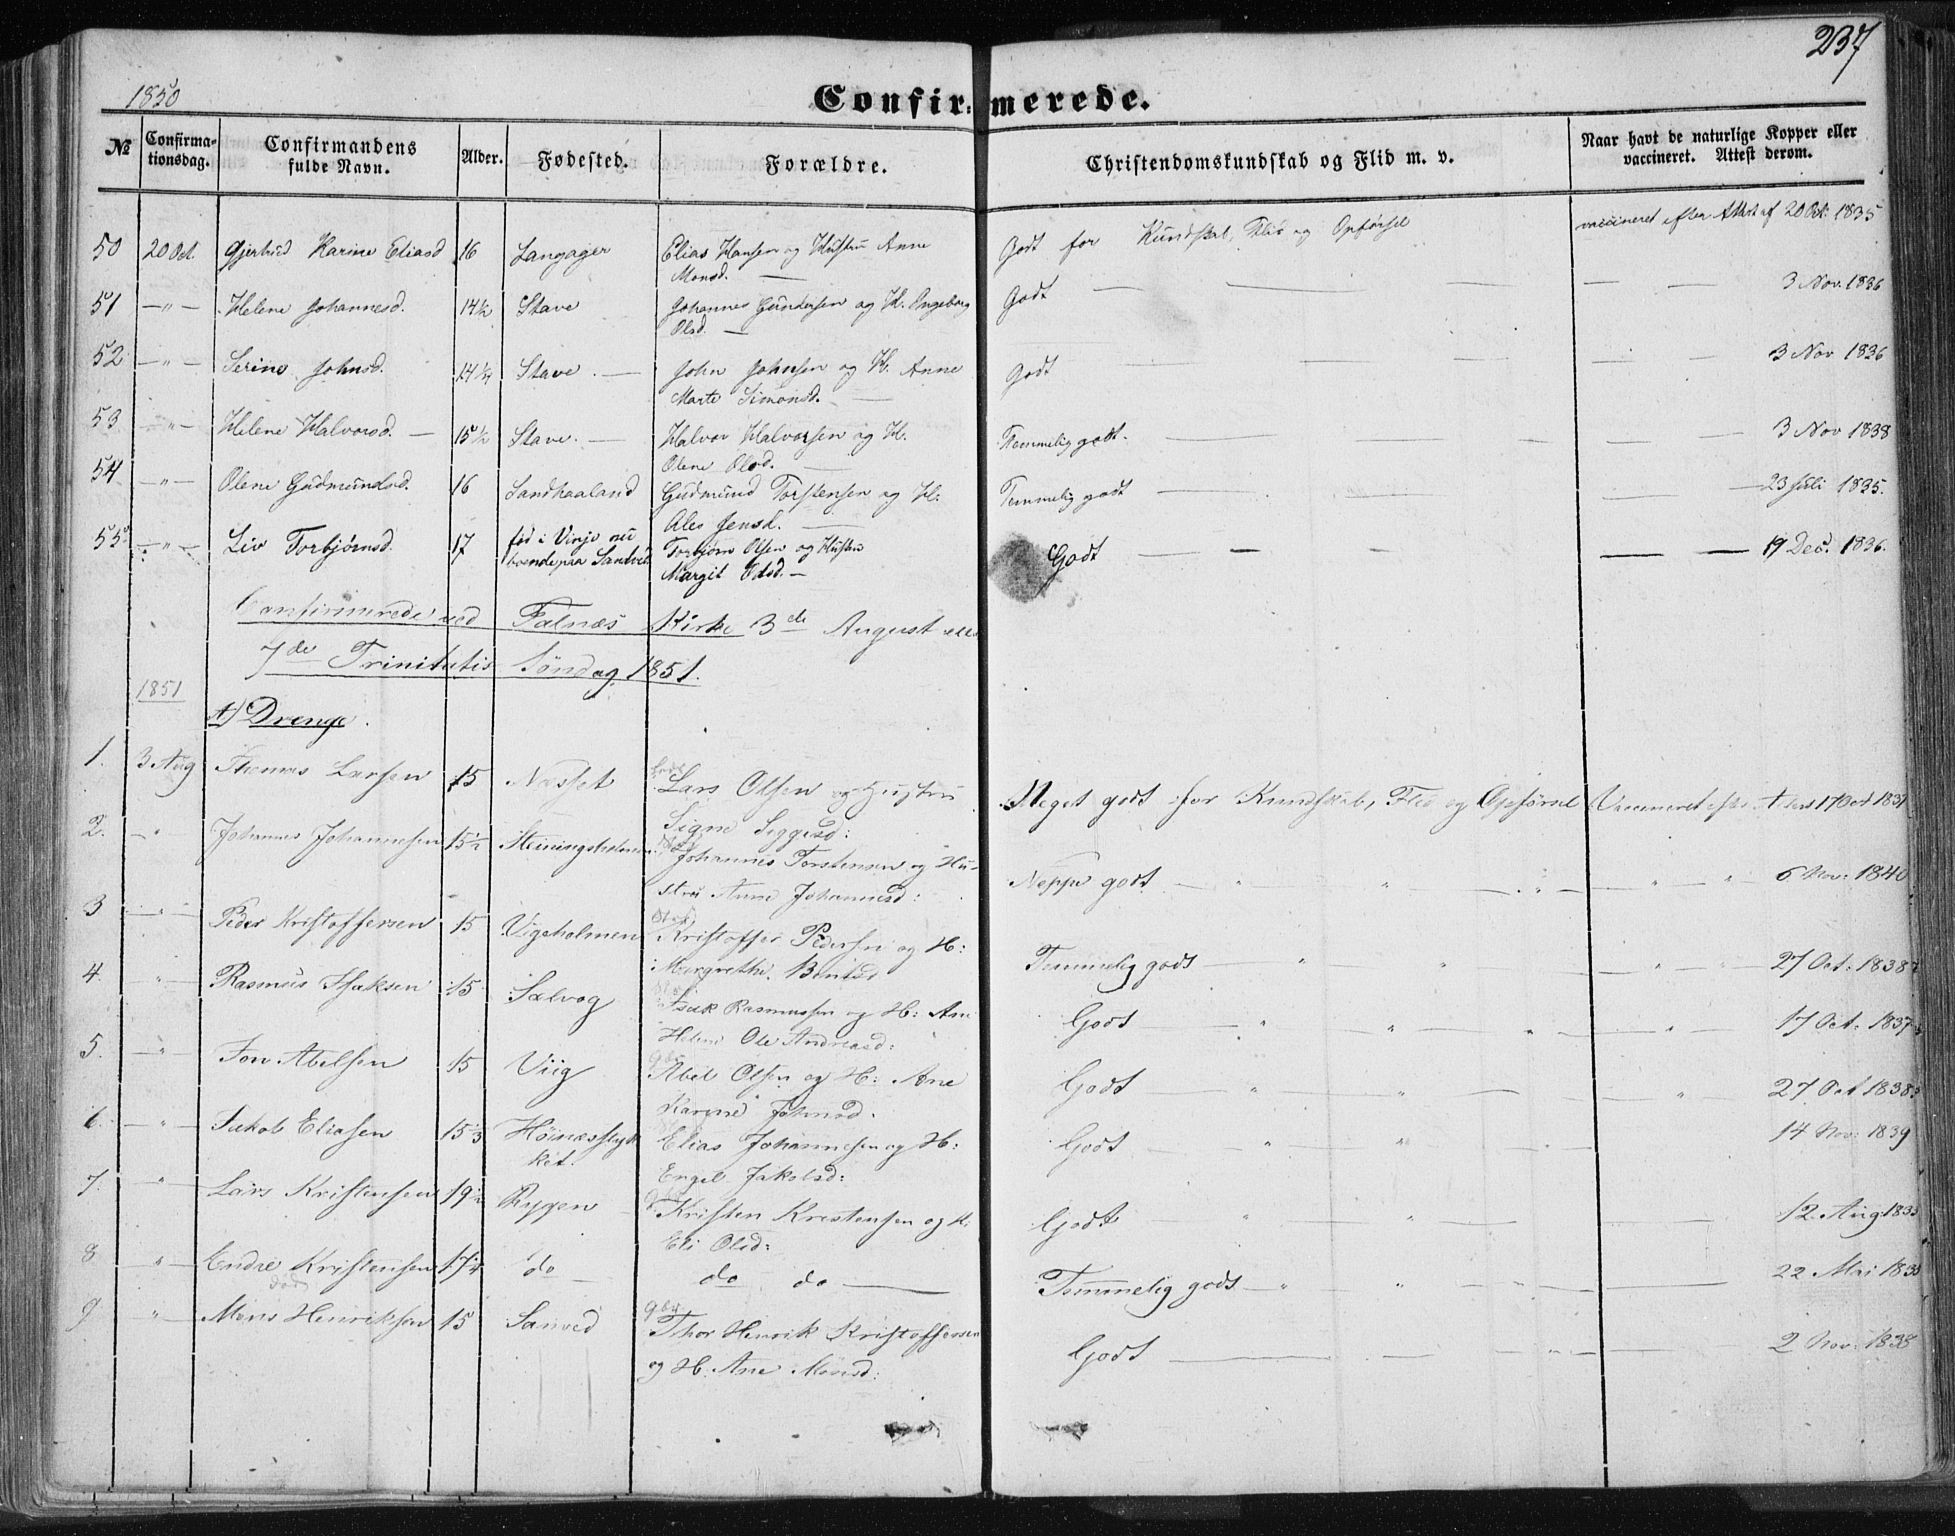 237
1850
Confirmerede.
№ Confirmationsdag. Confirmandens fulde Navn. Alder. Fødested. Forældre. Christendomskundskab og Flid m. v. Naar havt de naturlige Kopper eller vaccineret. Attest derom.
50 20 Oct. Gjertrud Karine Eliasd 16 Langager Elias Hansen og Hustru Anne Godt for Kundskab, Flid og Opførsel vaccineret efter Attest af 20 Oct: 1835
Monsd. —
51 — " — Helene Johannesd. 14½ Stave Johannes Gundersen og H. Ingeborg Godt — — — — — 3 Nov. 1836
Olsd. —
52 — " — Serine Johnsd. 14¼ Stave. — John Johnsen og H. Anne Godt — — — 3 Nov 1836
Marte Simonsd. —
53 — " — Helene Halvorsd. — 15½ Stave. — Halvor Halvorsen og H. Temmelig godt. — — — 3 Nov 1838
Olene Olsd. —
54 — " — Olene Gudmundsd. 16 Sandhaaland Gudmund Torstensen og H: Temmelig godt — — — 23 Juli 1835.
Ales Jensd. —
55 — " — Liv Torbjørnsd. 17 fød i Vinje nu Torbjørn Olsen og Hustru Godt — — — — — 19 Dec. 1836.
boende paa Sandved Margit Olsd. —
Confirmerede ved Falnæs Kirke 3de August
7de Trinitatis Søndag 1851.
1851
A) Drenge.
1. 3 Aug Thomas Larsen 15 Næsset Lars Olsen og Hustru Meget godt for Kundskab, Flid og Opførsel Vaccineret efter Attest 17 Oct 1837
Signe Siggesd:
2. " Johannes Johannesen 15½ Steiningsholmen Johannes Torstensen og Hu- Neppe godt — " " — " — " — " 6 Nov: 1840
stru Anne Johannesd:
3 — " — Peder Kristoffersen 15 Vigeholmen Kristoffer Pedersen og H: Temmelig godt — " " " — " 27 Oct: 1838
Margrethe Bentsd
4. " Rasmus Isaksen 15 Salvog Isak Rasmussen og H: Ane Godt — " " " — 17 Oct: 1837
Helene Ole Andreasd:
5. — " Jon Abelsen 15 Viig Abel Olsen og H: Ane Godt " " — " 27 Oct 1838
Karine Johnsd.
6. — " — Jakob Eliasen 15⅓ Høinæsstyk- Elias Johannesen og H: Godt " " 14 Nov: 1839
ket. Engel Jakobsd:
7. " Lars Kristensen 19½ Rygen Kristen Kristensen og H: Godt " " 12 Aug
Eli Olsd:
8 — " — Endre Kristensen 17¼ do — do do — Temmelig godt — " " — 22 Mai
død
9 " — Mons Henriksen 15 Sanved Thor Henrik Kristoffersen Godt — " — " — 2 Nov: 1838
og H: Ane Monsd: